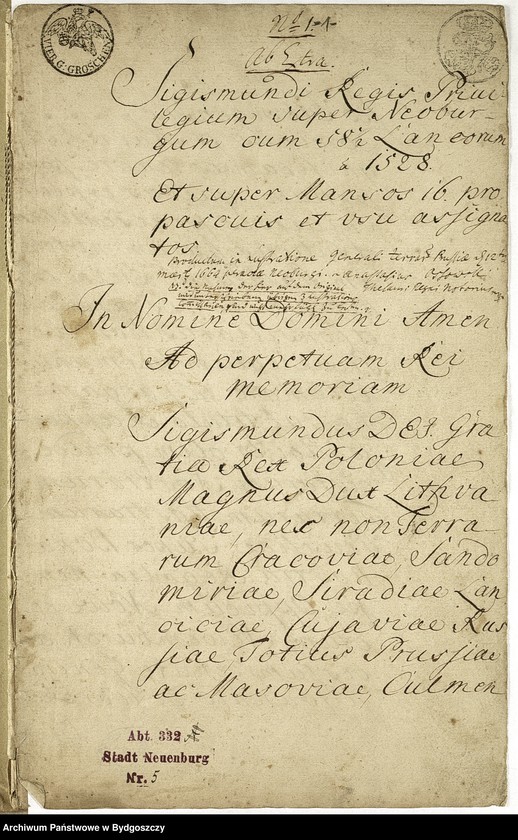 VIER G. GROSCHEN
No 1.
Ab Extra.
Sigismundi Regis Privi
legium super Neobur
gum cum 58½ Laneorum
1528.
Et super Mansos 16. pro
pascuis et usu assigna
tos.
Productum in lustratione generali terrar. Prussiae
In Nomine Domini Amen
Ad perpetuam Rei
memoriam
Sigismundus DEI Gra
tia Rex Poloniae
Magnus Dux Lithva
niae, nec non Terra
rum Cracoviae, Sando
miriae, Siradiae Lan
ciciae, Cujaviae Rus
siae, Totius Prussiae
ac Masoviae, Culmen
Abt. 332
Stadt Neuenburg
Nr. 5
Archiwum Państwowe w Bydgoszczy